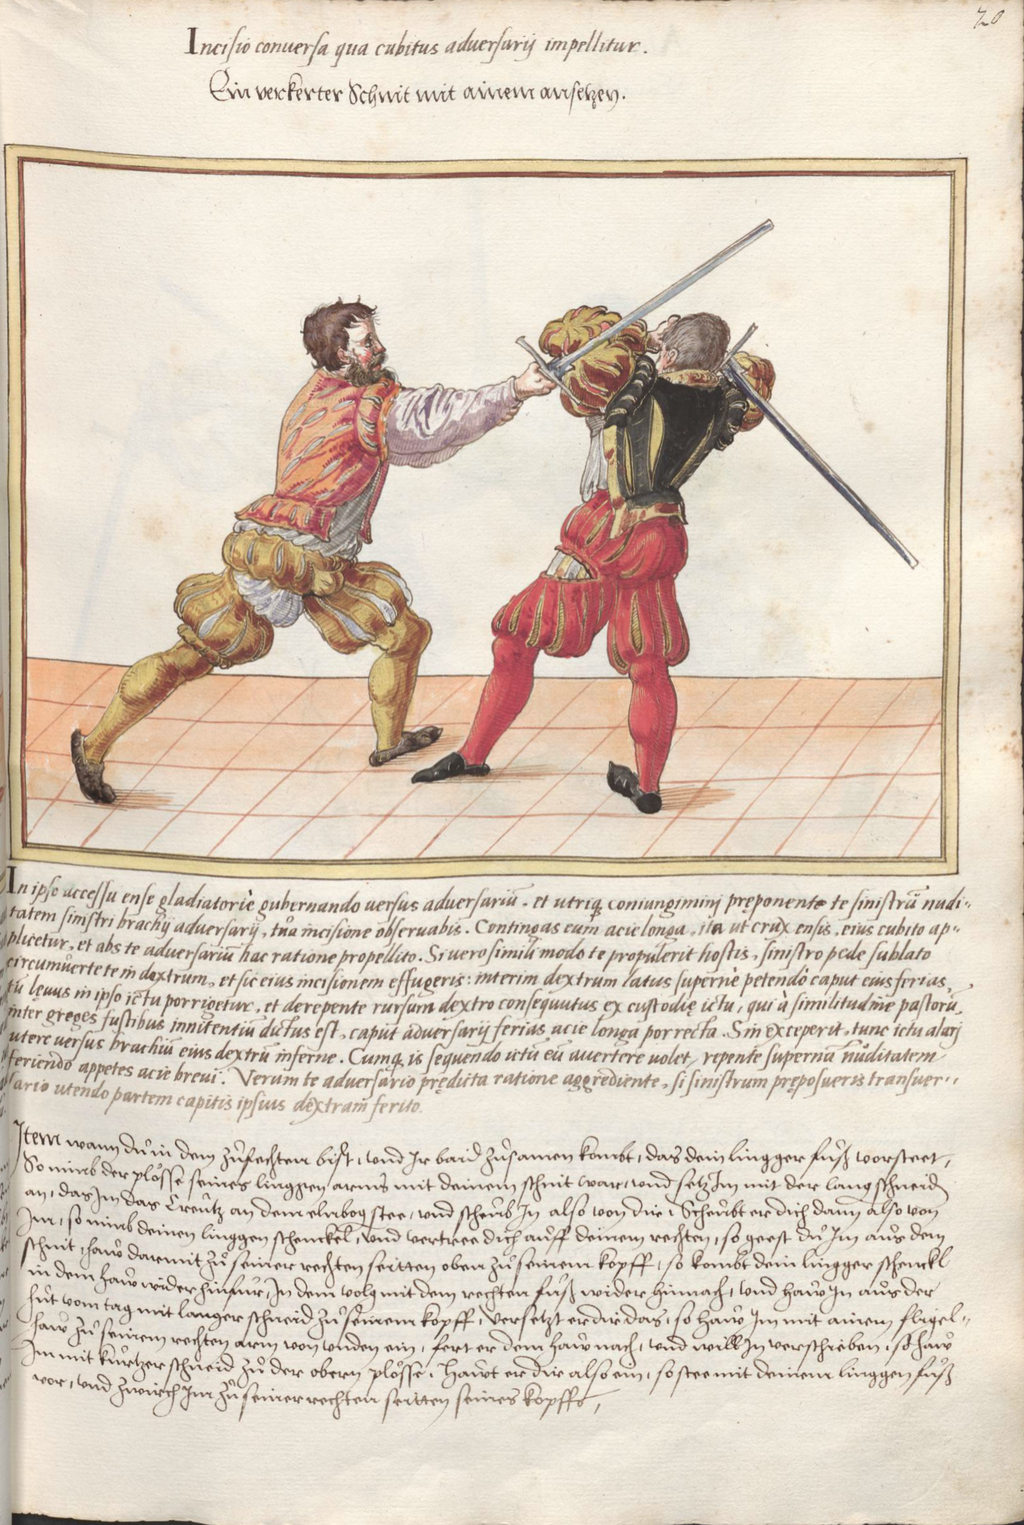 20
Incisio conversa qua cubitus adversarij impellitur.
Ein verkerter Schnit mit ainem ansetzen.
In ipso accessu ense gladiatoriè gubernando versus adversariũ, et utriq, coniungimini pręponente te sinistrũ nudi-
tatem sinistri brachij adversarij, tua incisione observabis. Contingas eum acie longa, ita ut crux ensis, eius cubito ap-
plicetur, et abs te adversariũ hac ratione propellito. Si vero simili modo te propulerit hostis, sinistro pede sublato
circumvertete in dextrum, et sic eius incisionem effugeris: interim dextrum latus supernè petendo caput eius ferias,
tũ lęvus in ipso ictu porrigetur, et derepente rursum dextro consequutus ex custodię ictu, qui à similitudine pastorũ
inter greges fustibus innitentiũ dictus est, caput adversarij ferias acie longa porrecta. Sin exceperit, tunc ictu alarj
utere versus brachiũ eius dextrũ inferne. Cumq, is sequendo ictũ eũ avertere volet, repente supernã nuditatem
feriendo appetes acie brevi. Verum te adversario prędicta ratione aggrediente, si sinistrum pręposueris transver-
ario utendo partem capitis ipsius dextram ferito.
Item wann du in dem zůfechten bist, und Ir baid zůsamen kombt, das dein lingger fůß vorsteet,
So nimb der plösse seines linggen arms mit deinem schnit war, und setz Im mit der lang schneid
an, das Im das Creütz an dem elnbog stee, und scheub In also von dir, Scheubt er dich dann also von
Im, so nimb deinen linggen schenckel, und vertree dich auff deinem rechten, so geest du Im aus dem
schnit, haw darmit zů seiner rechten seitten oben zů seinem kopff, so kombt dein lingger schenckl
in dem haw wider hinfur, In dem volg mit dem rechten fůß wider hinnach, und haw In aus der
hůt vom tag mit langer schneid zů seinem kopff, versetzt er dir das, so haw Im mit ainem fligel-
haw zů seinem rechten arm von unden ein, fert er dem haw nach, und will In verschieben, so haw
Im mit kurtzer schneid zů der obern plösse, Hawt er dir also ein, so stee mit deinem linggen fůß
vor, und zwirch Im zů seiner rechten seitten seines kopffs,